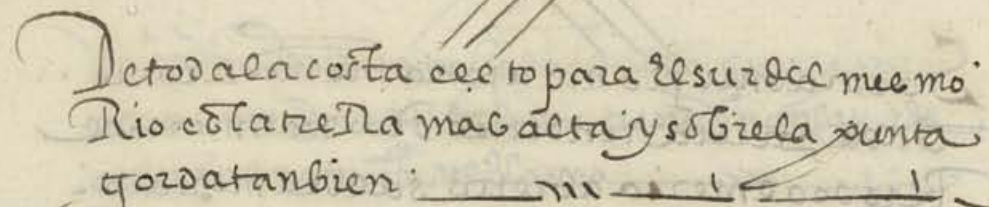 De toda la costa ecepto para el sur del mesmo
Rio esta tierra mas alta y sobre la punta
gorda tanbien